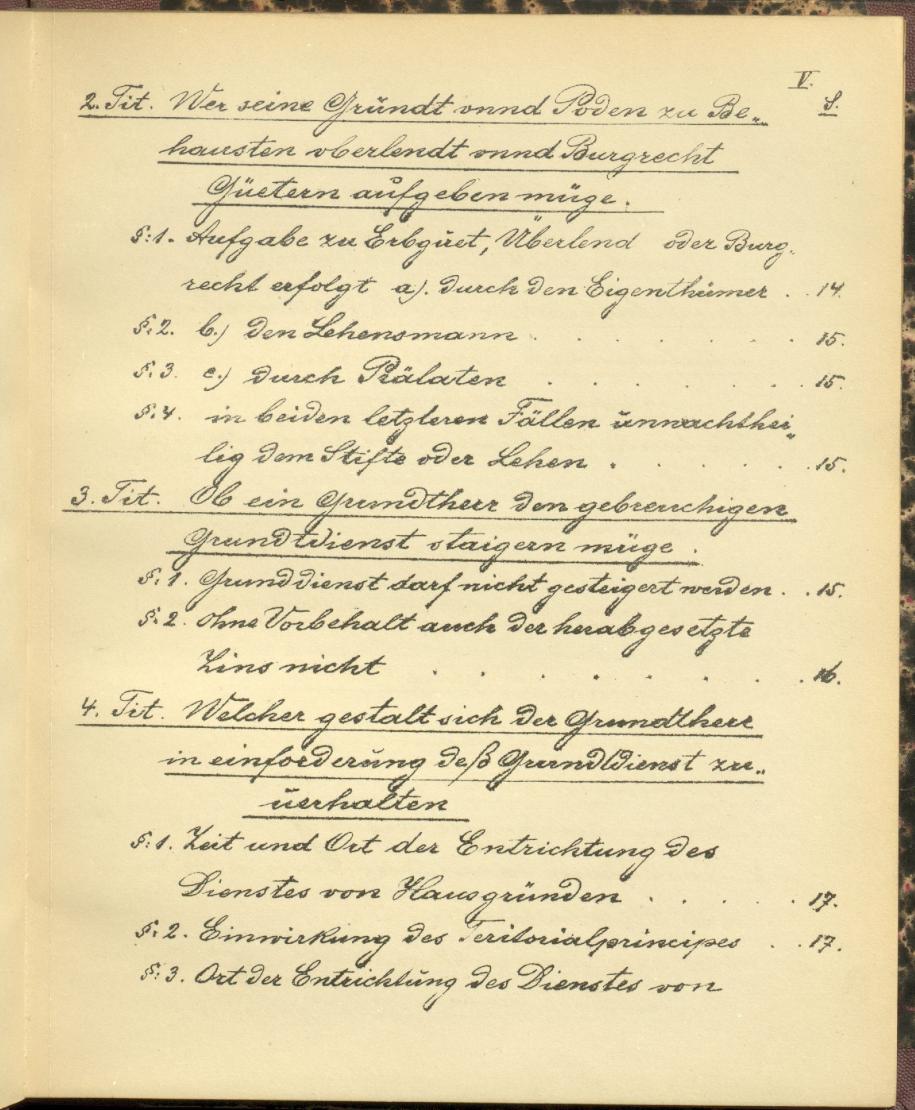 V.
2. Tit. Wer seine Gründt vnnd Poden zu Be„ S.
hausten vberlendt vnnd Burgrecht
Güetern aufgeben müge.
§:1. Aufgabe zu Erbgüet, Überlend oder Burg„
recht erfolgt a). durch den Eigenthümer . . 14.
§:2. b.) den Lehensmann . . . . . . . 15.
§:3. c.) durch Prälaten . . . . . . 15.
§:4. in beiden letzteren Fällen unnachthei„
lig dem Stifte oder Lehen . . . . . 15.
3. Tit. Ob ein Grundtherr den gebreuchigen
Grundtdienst staigern müge.
§:1. Grunddienst darf nicht gesteigert werden . . 15.
§:2. ohne Vorbehalt auch der herabgesetzte
Zins nicht . . . . . . . . 16.
4. Tit. Welcher gestalt sich der Grundtherr
in einforderung deß Grundtdienst zu„
uerhalten
§:1. Zeit und Ort der Entrichtung des
Dienstes von Hausgründen . . . . . 17.
§:2. Einwirkung des Teritorialprincipes . . 17.
§:3. Ort der Entrichtung des Dienstes von